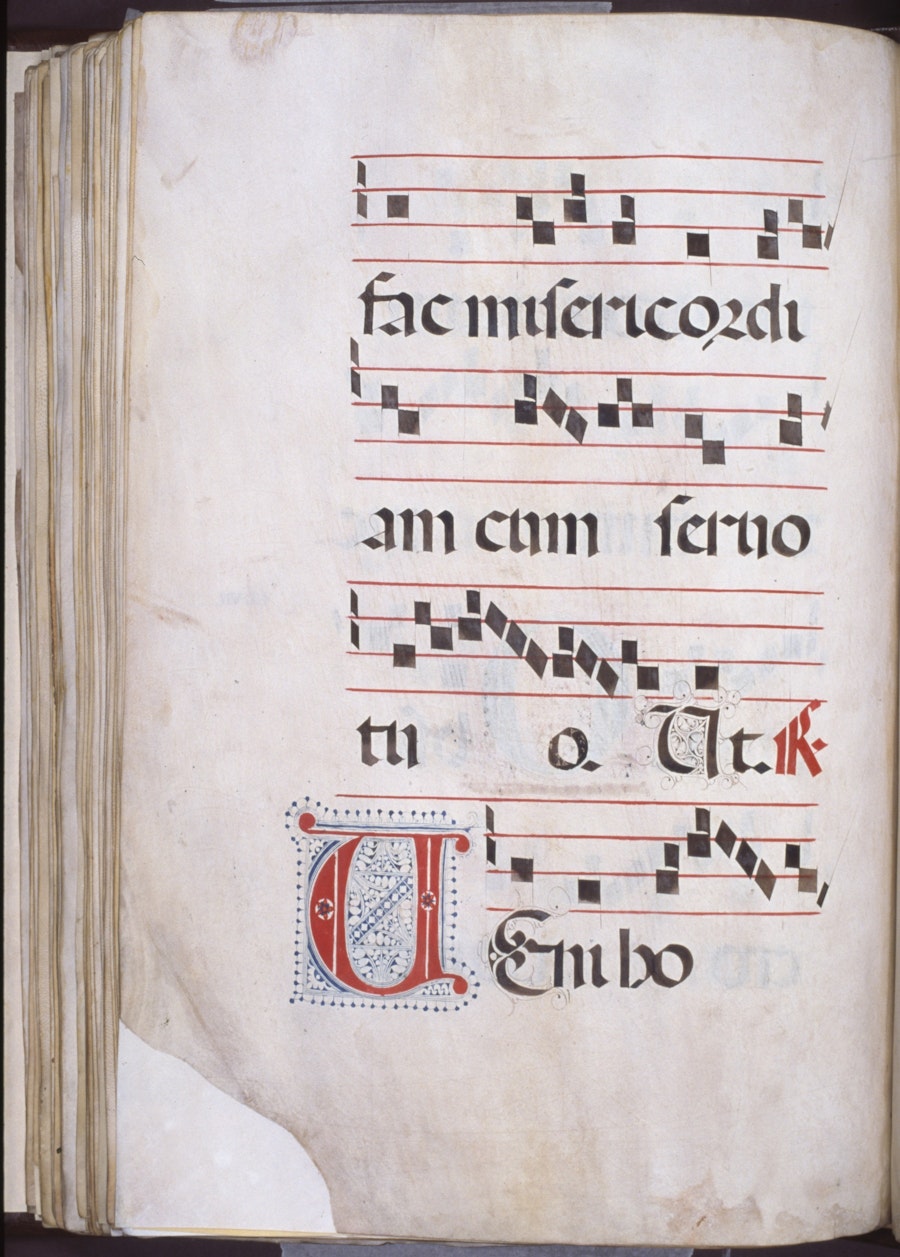 fac miſericordi
am cum ſeruo
tu o. Ut. R.
UEni ho